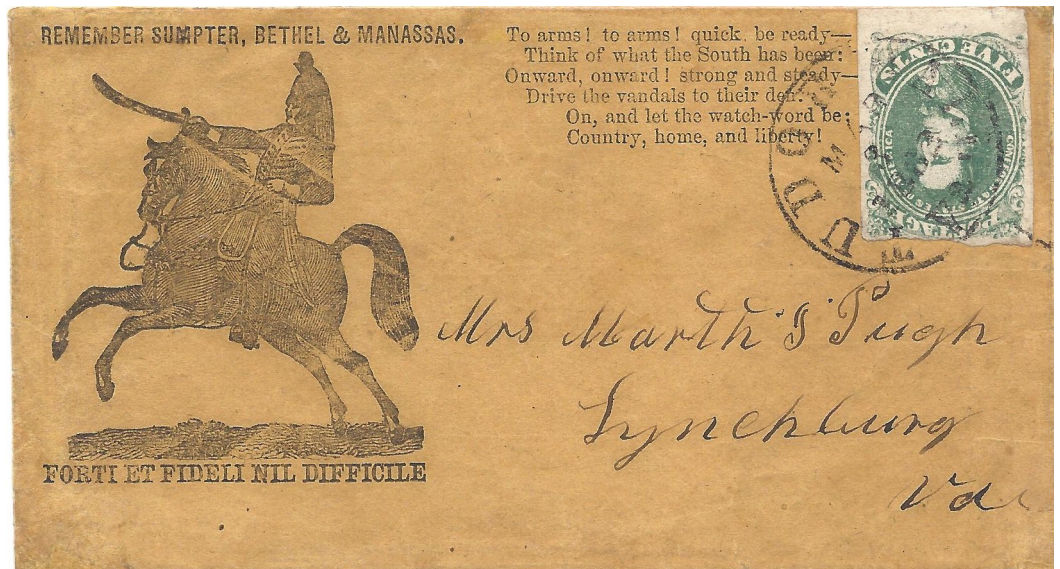 REMEMBER SUMPTER, BETHEL & MANASSAS.
To arms! to arms! quick, be ready—
Think of what the South has been:
Onward, onward! strong and steady—
Drive the vandals to their den.
On, and let the watch-word be:
Country, home, and liberty!
FIVE CENTS
POSTAGE
MAR
Mrs Marth S Pugh
Lynchburg
Va
FORTI ET FIDELI NIL DIFFICILE